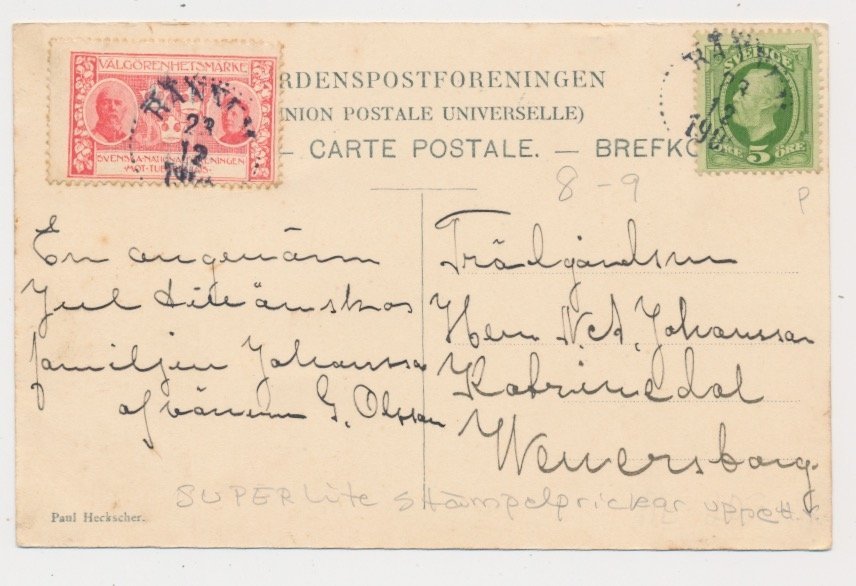 VÄLGÖRENHETSMÄRKE
SVENSKA NATIONALFÖRENINGEN
MOT TUBERKULOS
23
12
SVERIGE
5 ÖRE
12
190
RDENSPOSTFORENINGEN
NION POSTALE UNIVERSELLE)
— CARTE POSTALE. — BREFKO
8-9
P
En angenäm
Jul tillönskas
familjen Johansson
af vännen G. Olsson
Trädgårdsm
Herr N. A. Johansson
Katrinedal
Wenersborg
SUPER lite stämpelprickar uppe t.v.
Paul Heckscher.